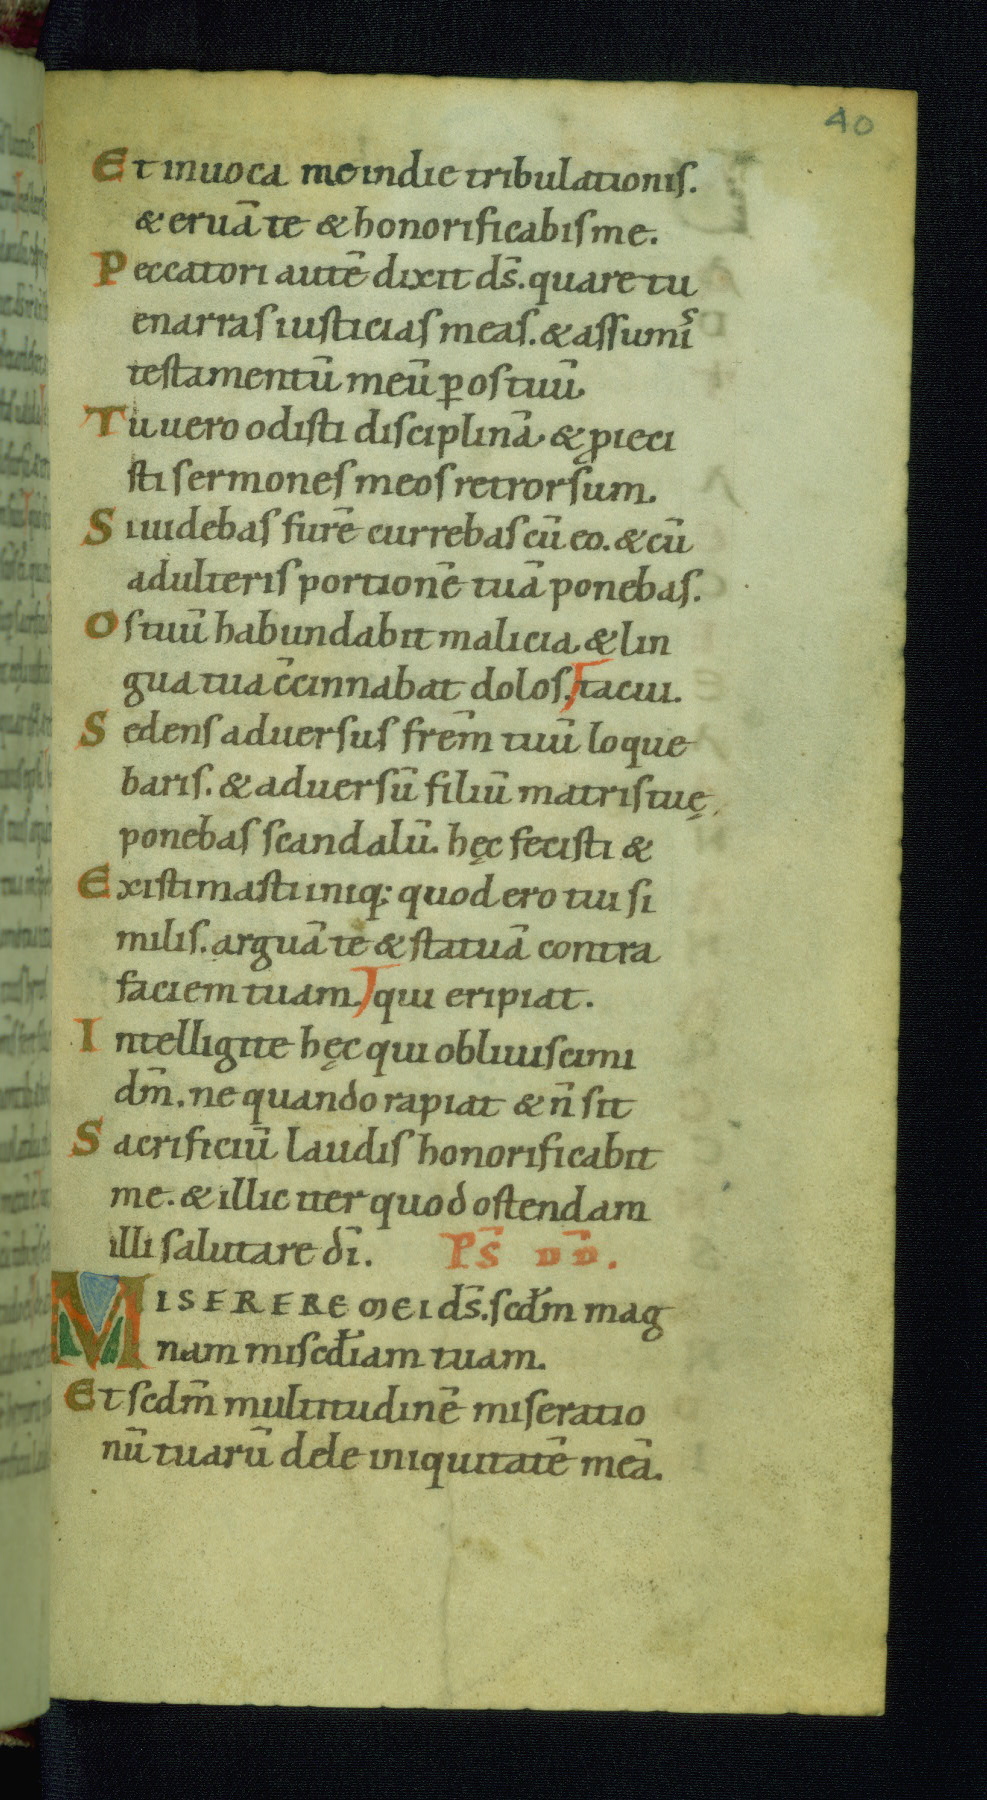 40
Et inuoca me in die tribulationis.
& eruā te & honorificabis me.
Peccatori autē dixit d̄s. quare tu
enarras iusticias meas. & assumis
testamentū meū ꝑ os tuū.
Tu uero odisti disciplinā. & ꝓieci
sti sermones meos retrorsum.
Si uidebas furē currebas cū eo. & cū
adulteris portionē tuā ponebas.
Os tuū habundabit malicia. & lin
gua tua c̄cinnabat dolos. tacui.
Sedens aduersus frēm tuū loque
baris. & aduersū filiū matris tuę
ponebas scandalū. hęc fecisti &
Existimasti iniq; quod ero tui si
milis. arguā te & statuā contra
faciem tuam. qui eripiat.
Intelligite hęc qui obliuiscimi
dm̄. ne quando rapiat & n̄ sit
Sacrificiū laudis honorificabit
me. & illic iter quod ostendam
illi salutare dī. PS̄ DD̄.
MISERERE MEI d̄s. scd̄m mag
nam miscd̄iam tuam.
Et scdm̄ multitudinē miseratio
nū tuarū dele iniquitatē meā.